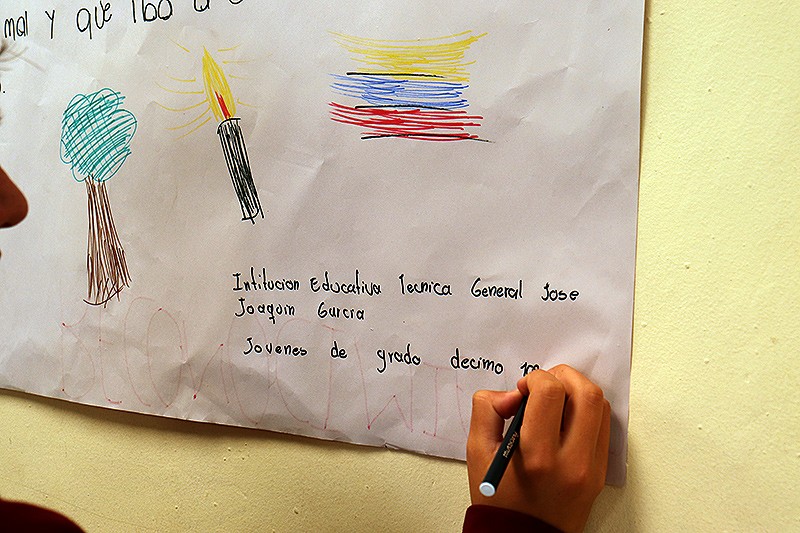 mal y que iba
Intitucion Educativa Tecnica General Jose
Joaquin Garcia
Jovenes de grado decimo